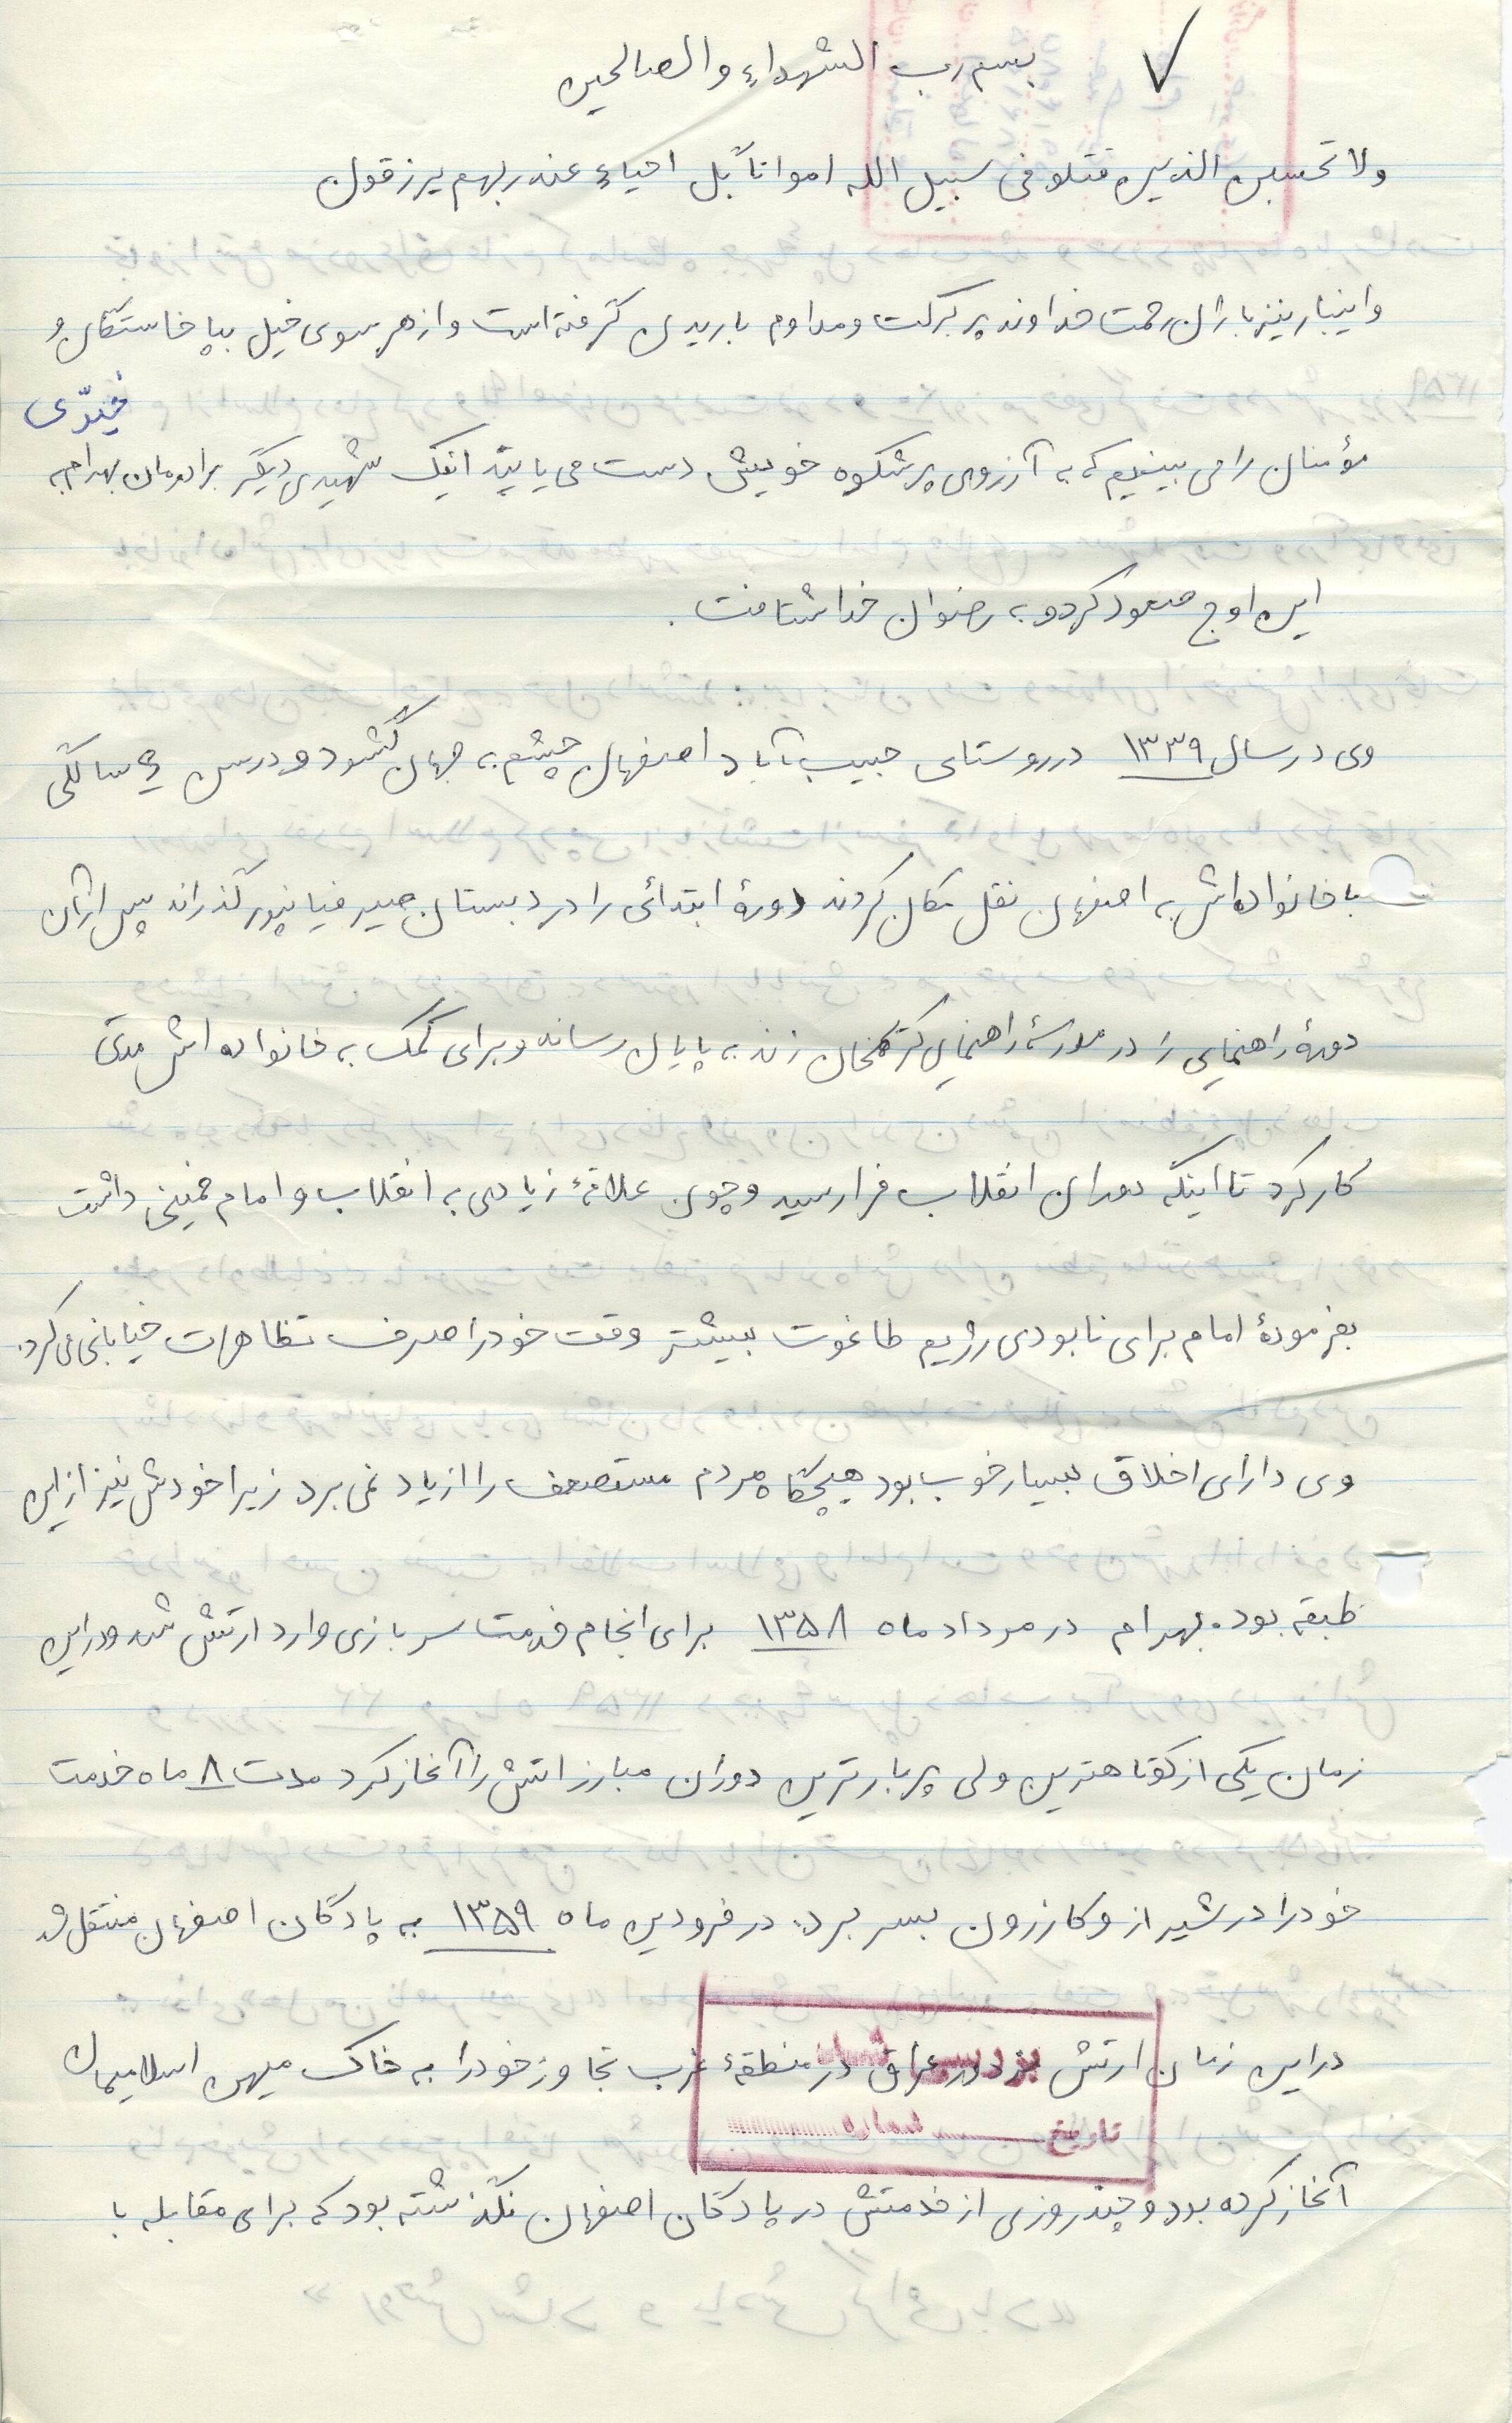 بسم رب الشهداء والصالحین
ولا تحسبن الذین قتلو فی سبیل الله امواتاً بل احیاء عند ربهم یرزقون
واینبار نیز باران رحمت خداوند پر برکت و مداوم باریدن گرفته است و از هر سوی خیل بپا خاستگان و
مؤمنان را می بینیم که به آرزوی پرشکوه خویش دست می یابند اینک شهیدی دیگر برادرمان بهرام به
این اوج صعود کرد و به رضوان خدا شتافت .
وی در سال ۱۳۳۹ در روستای حبیب آباد اصفهان چشم به جهان گشود و در سن سالگی
با خانواده اش به اصفهان نقل مکان کردند دورۀ ابتدائی را در دبستان گذراند پس از آن
دورۀ راهنمایی را در مدرسۀ راهنمایی کریمخان زند به پایان رساند و برای کمک به خانواده اش مدتی
کار کرد تا اینکه دوران انقلاب فرا رسید و چون علاقۀ زیادی به انقلاب و امام خمینی داشت
بفرمودۀ امام برای نابودی رژیم طاغوت بیشتر وقت خود را صرف تظاهرات خیابانی می کرد.
وی دارای اخلاق بسیار خوب بود هیچگاه مردم مستضعف را از یاد نمی برد زیرا خودش نیز از این
طبقه بود. بهرام در مرداد ماه ۱۳۵۸ برای انجام خدمت سربازی وارد ارتش شد و در این
زمان یکی از کوتاهترین ولی پربارترین دوران مبارزاتش را آغاز کرد مدت ۸ ماه خدمت
خود را در شیراز و کازرون بسر برد. در فرودین ماه ۱۳۵۹ به پادگان اصفهان منتقل شد
در این زمان ارتش مزدور عراق در منطقۀ غرب تجاوز خود را به خاک میهن اسلامیمان
تاریخ شماره
آغاز کرده بود و چند روزی از خدمتش در پادگان اصفهان نگذشته بود که برای مقابله با